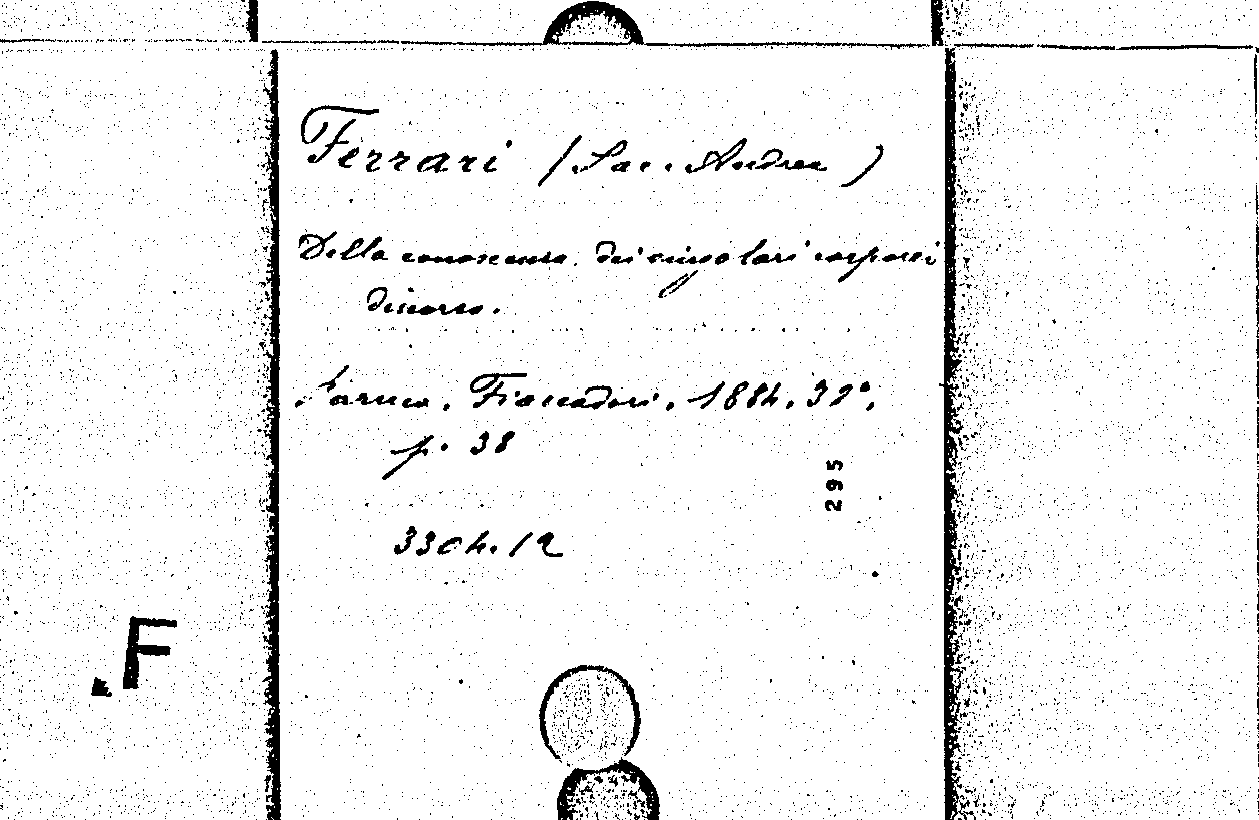 Ferrari (Sac. Andrea)
Della conoscenza dei singolari corporei
discorso.
Parma, Fiaccadori, 1884. 32°,
p. 38
295
3304.12
.F